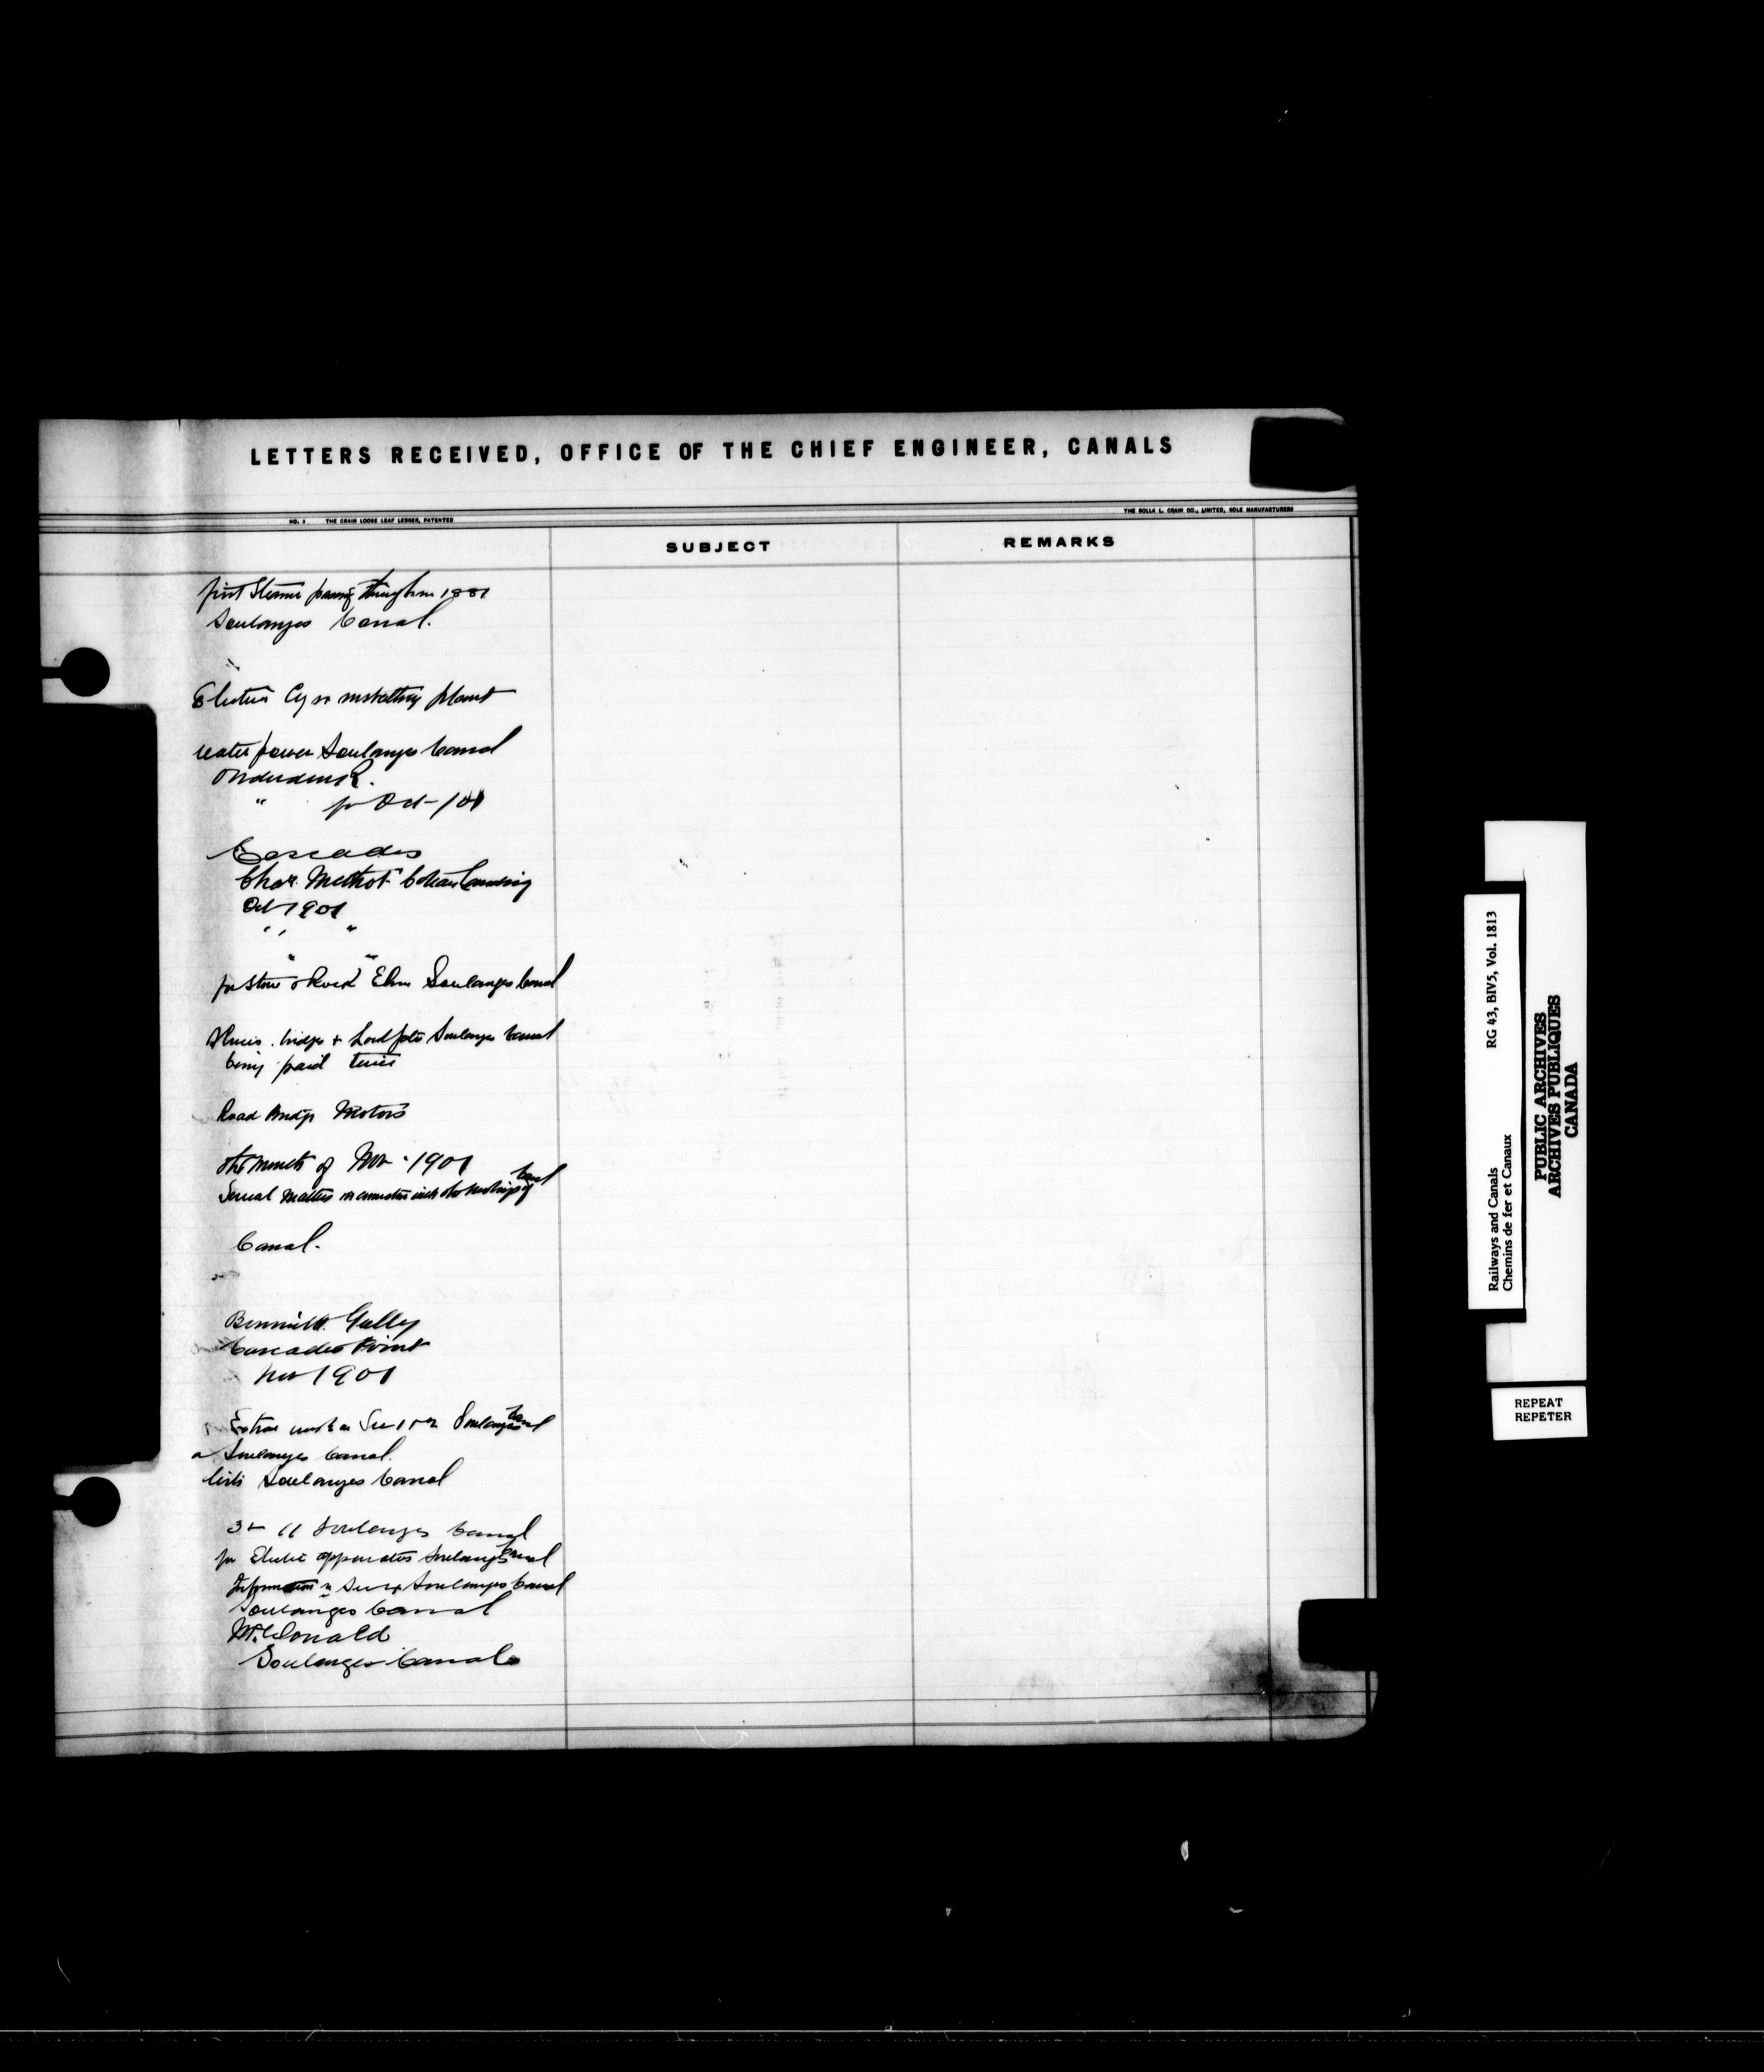 LETTERS RECEIVED, OFFICE OF THE CHIEF ENGINEER, CANALS
NO. 3 THE CRAIN LOOSE LEAF LEDGER, PATENTED
THE ROLLA L. CRAIN CO., LIMITED, SOLE MANUFACTURERS
SUBJECT
REMARKS
first Steamer passing 1881
Soulanges Canal.
Co installing plant
water power Soulanges Canal
" for Oct 1901
Cascades
Chas. Methot Coteau Landing
Oct 1901
" "
" "
for Stone & Rock Elm Soulanges Canal
bridges + Soulanges Canal
being paid twice
Road Bridge Motors
the month of Nov. 1901
Several matters in connection with the Canal
Canal.
Gully
Cascades Point
Nov 1901
Extra work on Sec 1 & 2 Soulanges Canal
Soulanges Canal.
Soulanges Canal
3 & 11 Soulanges Canal
for Electric apparatus Soulanges Canal
Information Sec 4 Soulanges Canal
Soulanges Canal
McDonald
Soulanges Canal
Railways and Canals RG 43, BIV5, Vol. 1813
Chemins de fer et Canaux
PUBLIC ARCHIVES
ARCHIVES PUBLIQUES
CANADA
REPEAT
REPETER